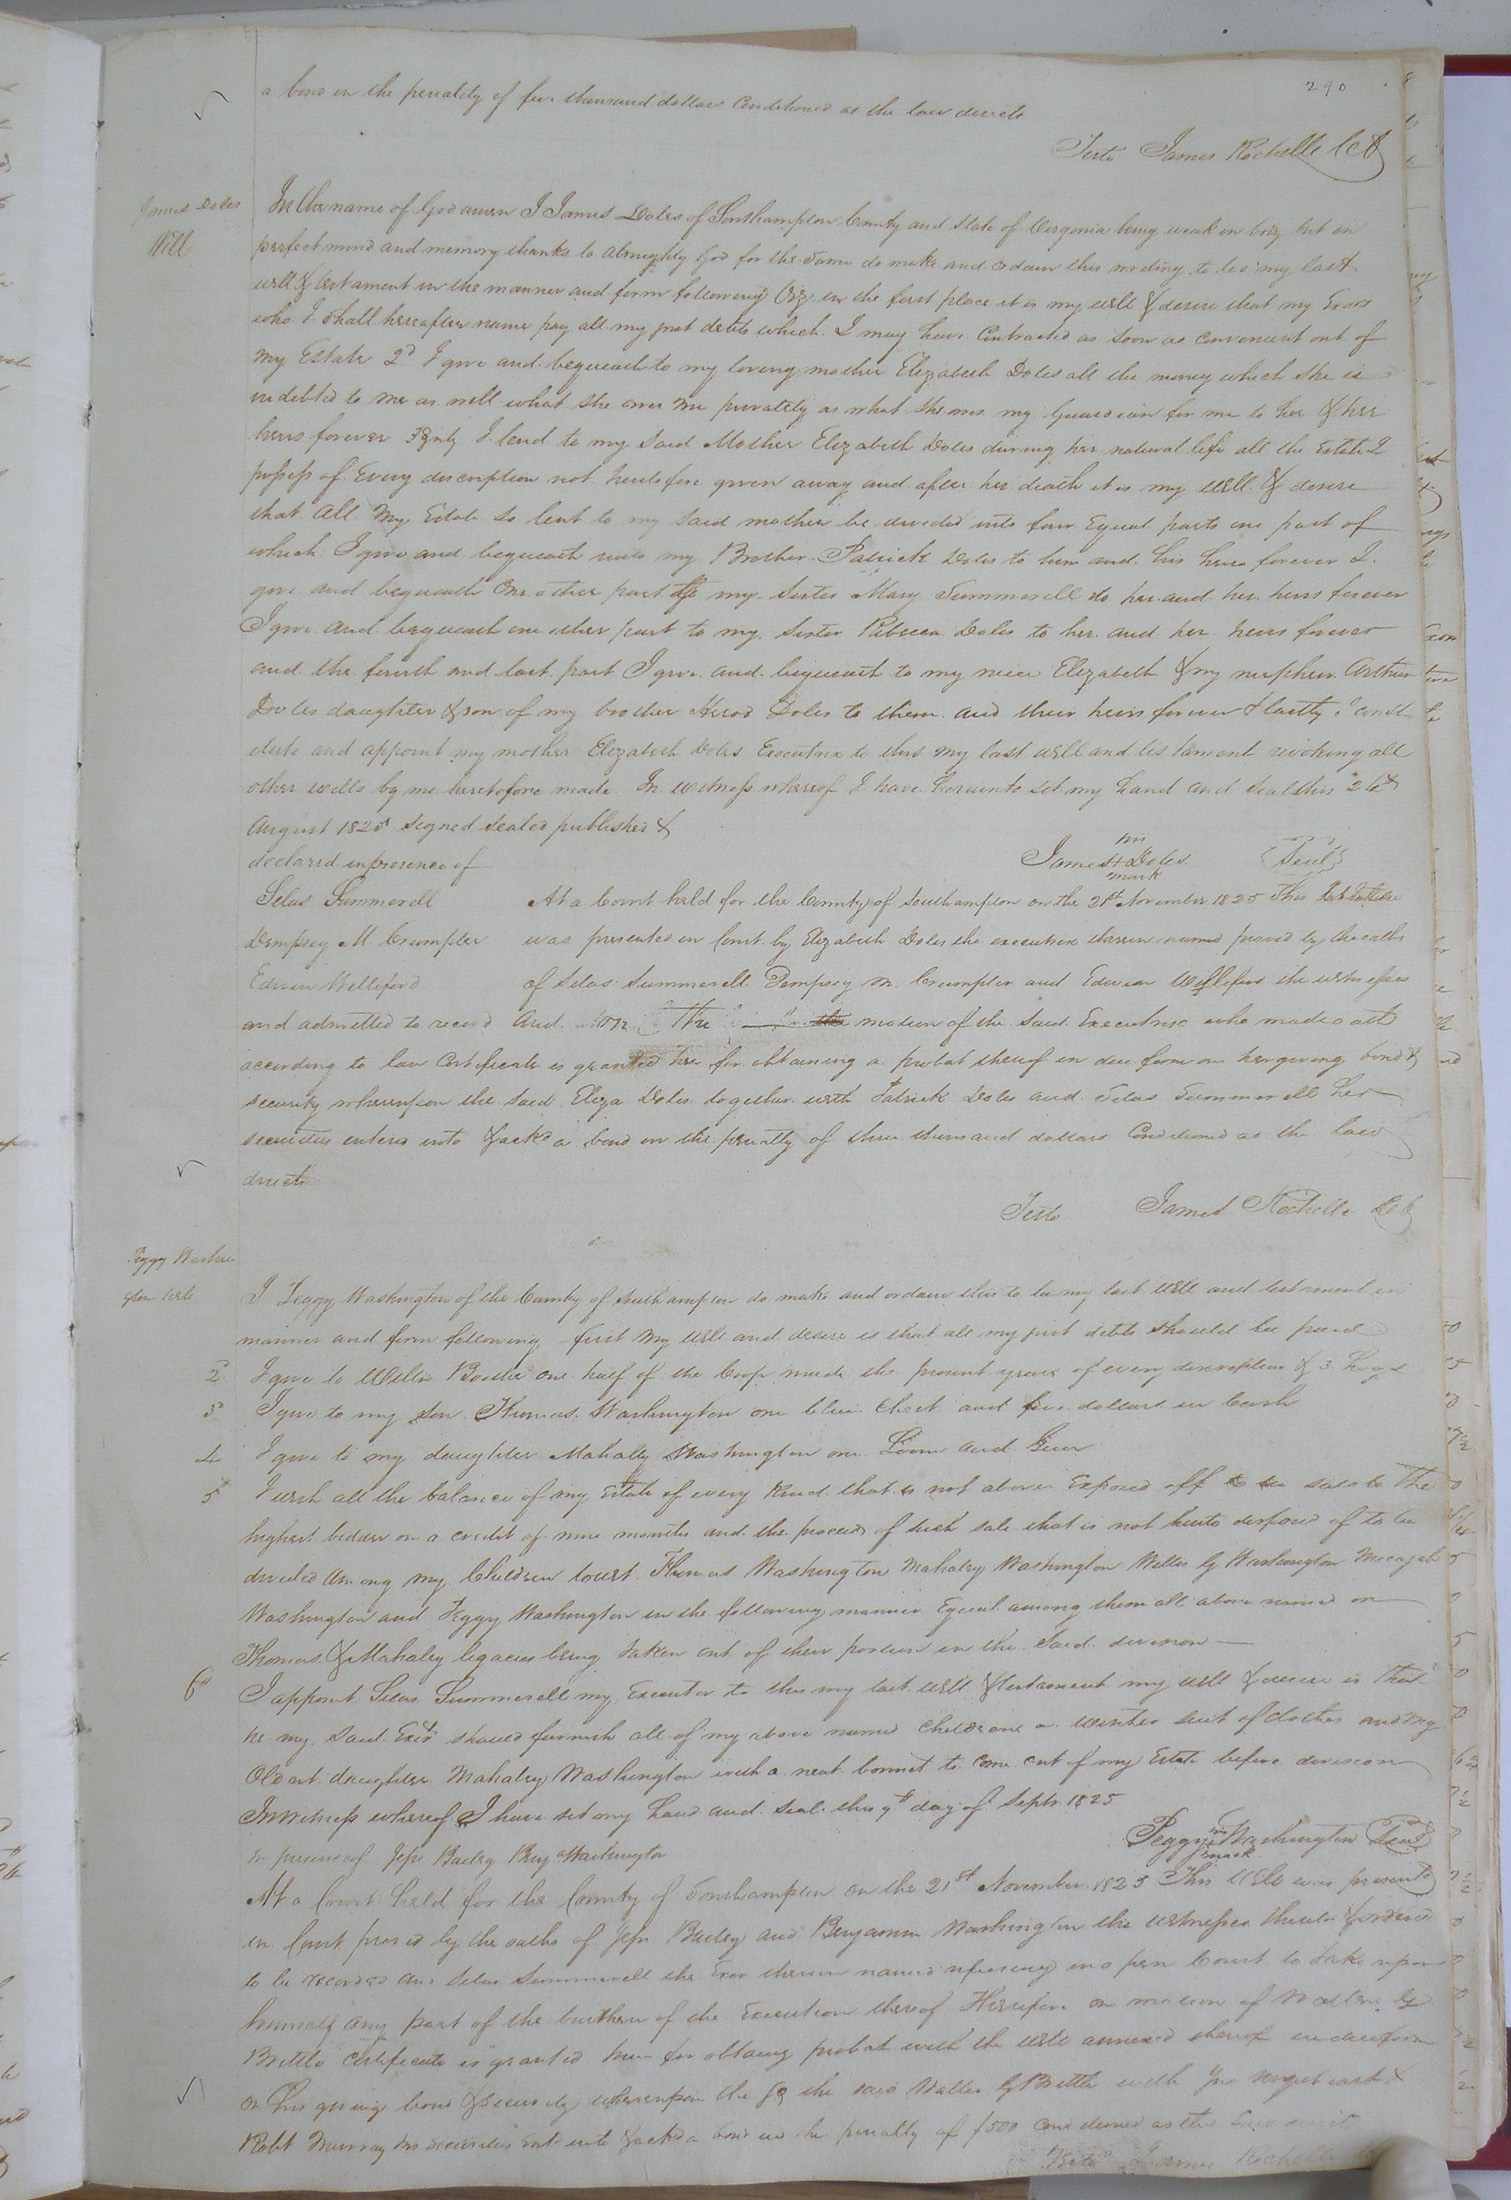 290
a bond in the penalty of five thousand dollars Conditioned as the law directs
Teste James Rochelle CC
James Doles
Will
In the name of God amen I James Doles of Southampton County and State of Virginia being weak in body but in
perfect mind and memory thanks to almighty God for the same do make and ordain this writing to be my last
will & testament in the manner and form following Viz in the first place it is my will & desire that my Exors
who I shall hereafter name pay all my just debts which I may have Contracted as soon as convenient out of
my Estate 2d I give and bequeath to my loving mother Elizabeth Doles all the money which she is
indebted to me as well what she owes me privately as what she owes my Guardian for me to her & her
heirs forever I lend to my said Mother Elizabeth Doles during her natural life all the Estate I
possess of Every discription not heretofore given away and after her death it is my will & desire
that all my Estate so lent to my said mother be devided into four Equal parts one part of
which I give and bequeath unto my Brother Patrick Doles to him and his heirs forever I
give and bequeath One other part to my Sister Mary Summerell to her and her heirs forever
I give and bequeath one other part to my Sister Rebecca Doles to her and her heirs forever
and the fourth and last part I give and bequeath to my niece Elizabeth & my nephew Arthur
Doles daughter & son of my brother Herod Doles to them and their heirs forever & lastly I const
itute and appoint my mother Elizabeth Doles Executrix to this my last will and testament revoking all
other wills by me heretofore made In witness whereof I have hereunto set my hand and seal this
August 1825 signed sealed published &
declared in presence of
his
James + Doles Seal
mark
Silas Summerell
Dempsey M. Crumpler
Edwin Welleford
At a Court held for the County of Southampton on the 21st November 1825 This
was presented in Court by Elizabeth Doles the executrix therein named proved by the oaths
of Silas Summerell Dempsey M. Crumpler and Edwin Welleford the witnesses
and admitted to record And the motion of the said Executrix who made oath
according to law Certificate is granted her for obtaining a probat thereof in due form on her giving bond &
security whereupon the said Eliza Doles together with Patrick Doles and Silas Summerell her
securities entered into & ackd a bond in the penalty of three thousand dollars Conditioned as the law
directs
Teste James Rochelle CC
Peggy Washin
gton Will
I Peggy Washington of the County of Southampton do make and ordain this to be my last will and testament in
manner and form following first my will and desire is that all my just debts should be paid
2d I give to one half of the Crop made the present year of every description & 3 hogs
3d I give to my son Thomas Washington one blue Chest and five dollars in Cash
4 I give to my daughter Mahaley Washington one Loom and Gear
5th I wish all the balance of my Estate of every kind that is not above Exposed off to sale to the
highest bidder on a credit of nine months and the proceeds of such sale that is not hereto disposed of to be
devided among my Children towit Thomas Washington Mahaley Washington Miller G Washington Micajah
Washington and Peggy Washington in the following manner Equal among them all above named on
Thomas & Mahaley legacies being taken out of their portion in the said division
6th I appoint Silas Summerell my Executor to this my last will & testament my will & desire is that
he my said Exor should furnish all of my above named Children a winter suit of clothes and my
Oldest daughter Mahaley Washington with a neat bonnet to come out of my Estate before division
In witness whereof I have set my hand and seal this 9th day of Septr 1825
in presence of Jesse Bailey Benj Washington
his
Peggy + Washington Seal
mark
At a Court held for the County of Southampton on the 21st November 1825 This Will was presented
in Court proved by the oaths of Jesse Bailey and Benjamin Washington the witnesses thereto & ordered
to be recorded and Silas Summerell the Exor therein named refusing in open Court to take upon
himself any part of the burthen of the Execution thereof Therefore on motion of G
Brittle certificate is granted him for obtaing probat with the will annexed thereof in due form
on his giving bond & security whereupon the the said G Brittle with &
Robt Murray his securities ent into & ackd a bond in the penalty of $500 conditioned as the law direct
Teste James Rochelle